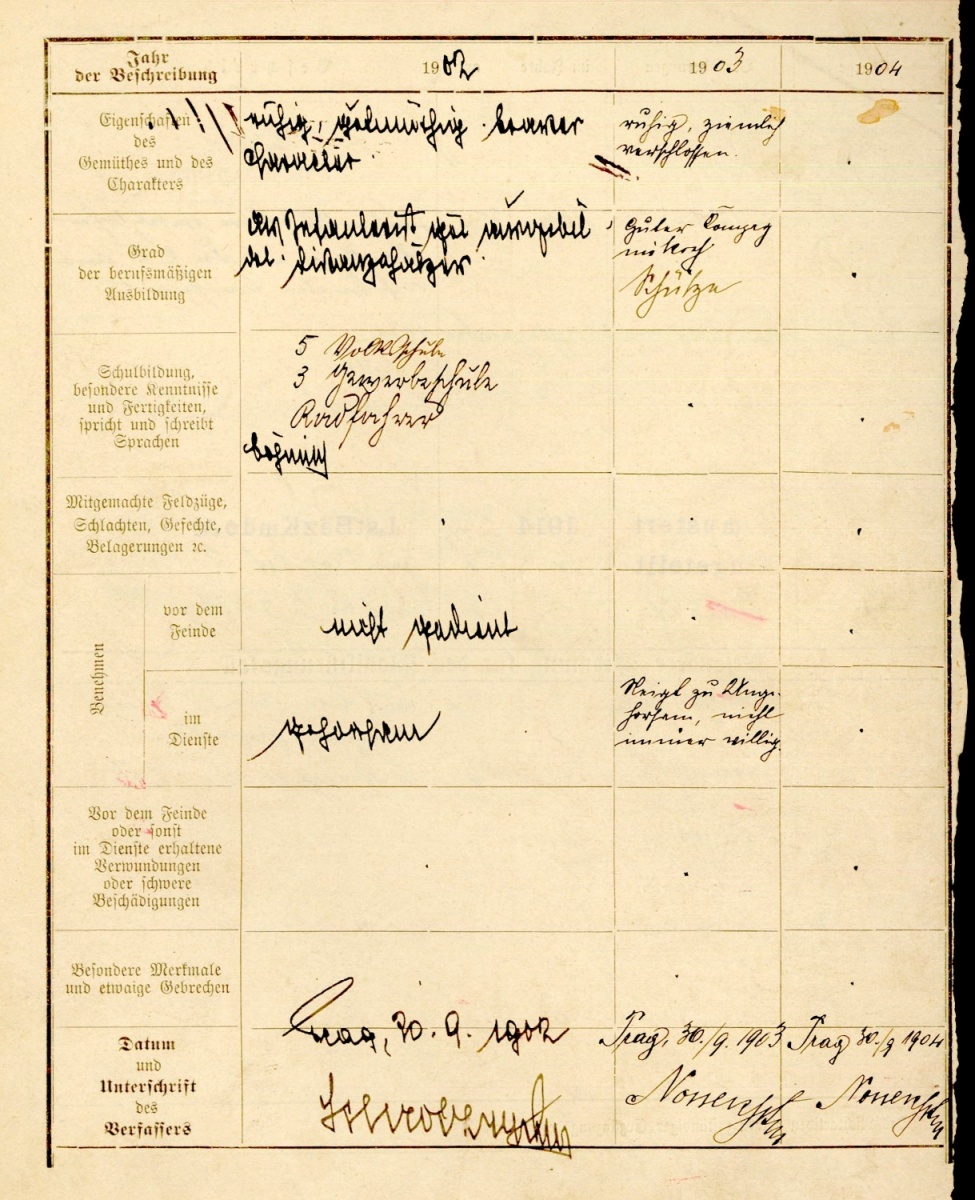 Jahr
der Beschreibung
1902
1903
1904
Eigenschaften
des
Gemüthes und des
Charakters
ruhig, gutmüthig braver
Character
ruhig, ziemlich
verschlossen.
Grad
der berufsmäßigen
Ausbildung
als Infanterist gut ausgebil
det. Distanzschätzer
Guter
Schütze
Schulbildung,
besondere Kenntnisse
und Fertigkeiten,
spricht und schreibt
Sprachen
5 Volksschule
3 Gewerbeschule
Radfahrer
böhmisch
Mitgemachte Feldzüge,
Schlachten, Gefechte,
Belagerungen ꝛc.
Benehmen
vor dem
Feinde
nicht gedient
im
Dienste
gehorsam
Neigt zu Unge-
horsam, nicht
immer willig.
Vor dem Feinde
oder sonst
im Dienste erhaltene
Verwundungen
oder schwere
Beschädigungen
Besondere Merkmale
und etwaige Gebrechen
Datum
und
Unterschrift
des
Verfassers
Prag, 30. 9. 1902
Prag, 30./9. 1903
Prag 30./9 1904